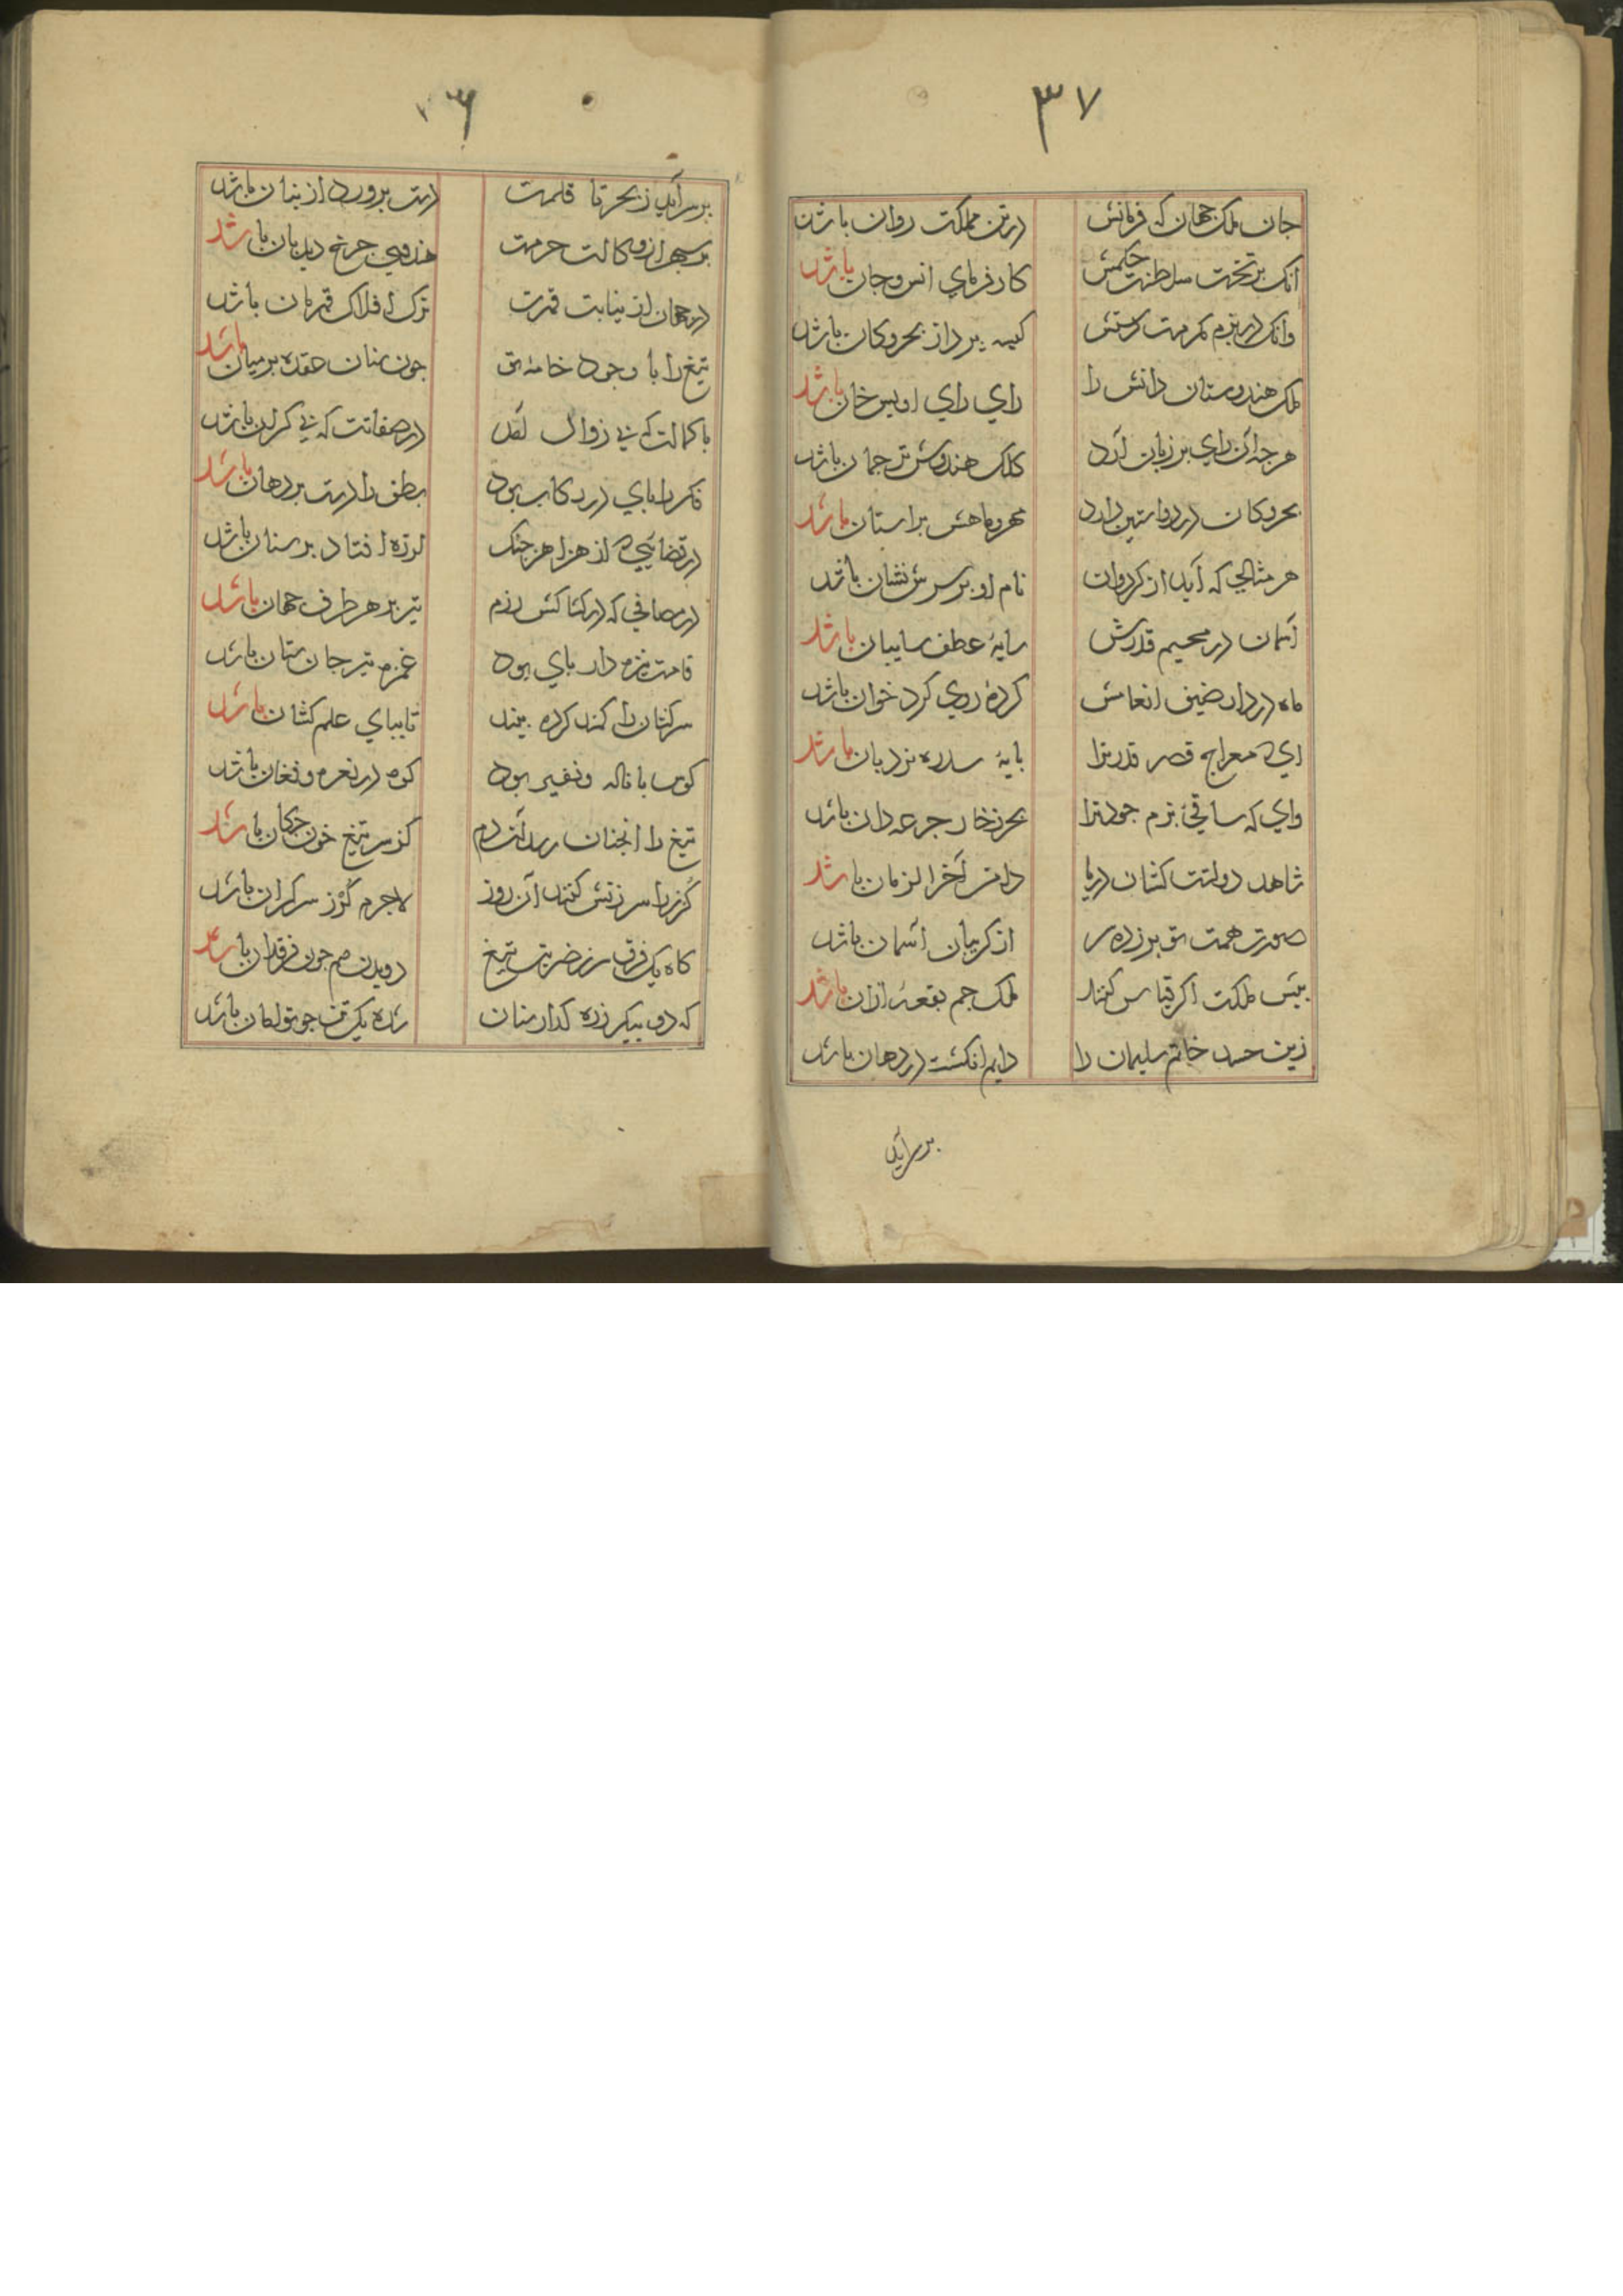 ۳۷
جان ملک جهان که فرمانش در تن مملکت روان باشد
انک بر تخت سلطنت حکمش کار فرمای انس و جان باشد
وانک در بزم مکرمت دستش کیسه پرداز بحر و کان باشد
ملک هندوستان دانش را رای رای اویس خان باشد
هرچه آن رای بر زبان آرد کلک هندوش ترجمان باشد
بحر و کان در دو آستین دارد مهر و ماهش بر آستان باشد
هر مثالی که آید از کردون نام او بر سرش نشان باشد
آسمان در حریم قدرش سایهٔ عطف سایبان باشد
ماه در دار ضیف انعامش کردهٔ روی کرد خوان باشد
ای که معراج قصر قدر ترا پایهٔ سدره نردبان باشد
وای که ساقئ بزم جود ترا بحر زخار جرعه دان باشد
شاهد دولتت کشان در پا دامن آخر الزمان باشد
صورت همت تو بر زده سر از کریبان آسمان باشد
پیش ملکت اکر قیاس کنند ملک جم بقعهٔ ازان باشد
زین حسد خاتم سلیمان را دایم انکشت در دهان باشد
بر سر آید
۳۶
بر سر آید ز بحر تا قلمت دست پرورد از بنان باشد
بر سپهر از وکالت حرمت هندوی چرخ دیدبان باشد
در جهان از نیابت قهرت ترک افلاک قهرمان باشد
تیغ را با وجود خامه تو چون سنان عقده بر میان باشد
با کمالت که بی زوال در صفاتت که بی کران باشد
فکر را پای در رکاب بود نطق را دست بر دهان باشد
در قضائی که از هزاهز جنک لرزه افتاد بر سنان باشد
در مصافی که در کشاکش رزم تیر بر هر طرف جهان باشد
قامت نیزه دلربای بود غمزه تیر جان ستان باشد
سرکشان را کمند کرده ببند تا بپای علم کشان باشد
کوس با ناله و نفیر بود کوه در نعره و فغان باشد
تیغ را انچنان رسد آن دم کز سر تیغ خون چکان باشد
کرز را سرزنش کنند آن روز لاجرم کرز سرکران باشد
کاه یک فرق سر ز ضربت تیغ دو بدن هم چون فرقدان باشد
که دو پیکر زده کدار سنان شده یک تن چو توامان باشد